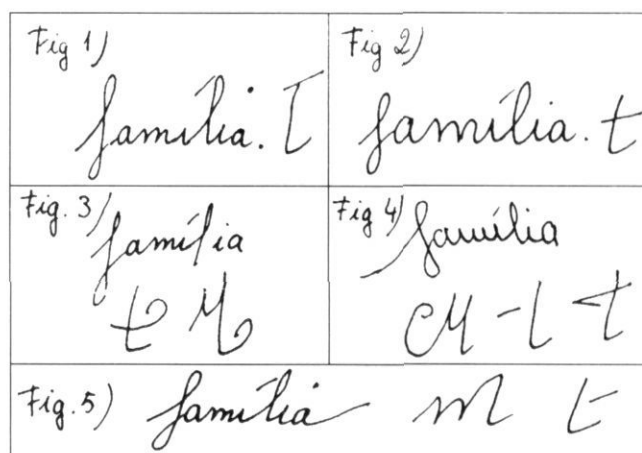 Fig 1)
família. t
Fig 2)
família. t
Fig. 3)
família
t M
Fig 4)
família
M - t t
Fig. 5) família m t